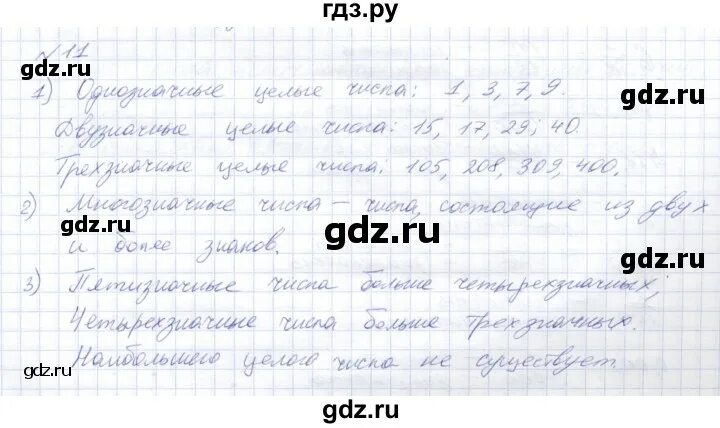 гдз.ру
№ 11
gdz.ru gdz.ru
1) Однозначные целые числа: 1, 3, 7, 9.
Двузначные целые числа: 15, 17, 29; 40.
Трехзначные целые числа: 105, 208, 309, 400.
2) Многозначные числа – числа, состоящие из двух
gdz.ru
и более знаков.
3) Пятизначные числа больше четырехзначных;
gdz.ru gdz.ru
Четырехзначные числа больше трехзначных.
Наибольшего целого числа не существует.
gdz.ru gdz.ru
gdz.ru